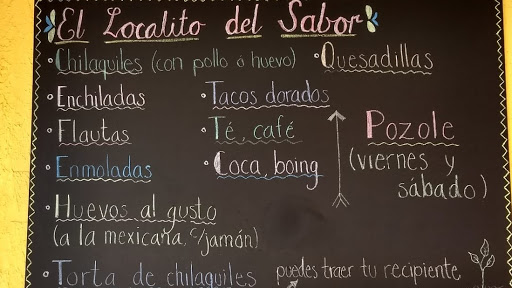 El Localito del Sabor
• Chilaquiles (con pollo ó huevo)
• Quesadillas
• Enchiladas
• Tacos dorados
• Flautas
• Té, café
• Enmoladas
• Coca, boing
Pozole
(viernes y
sábado)
• Huevos al gusto
(a la mexicana, c/jamón)
• Torta de chilaquiles
puedes traer tu recipiente